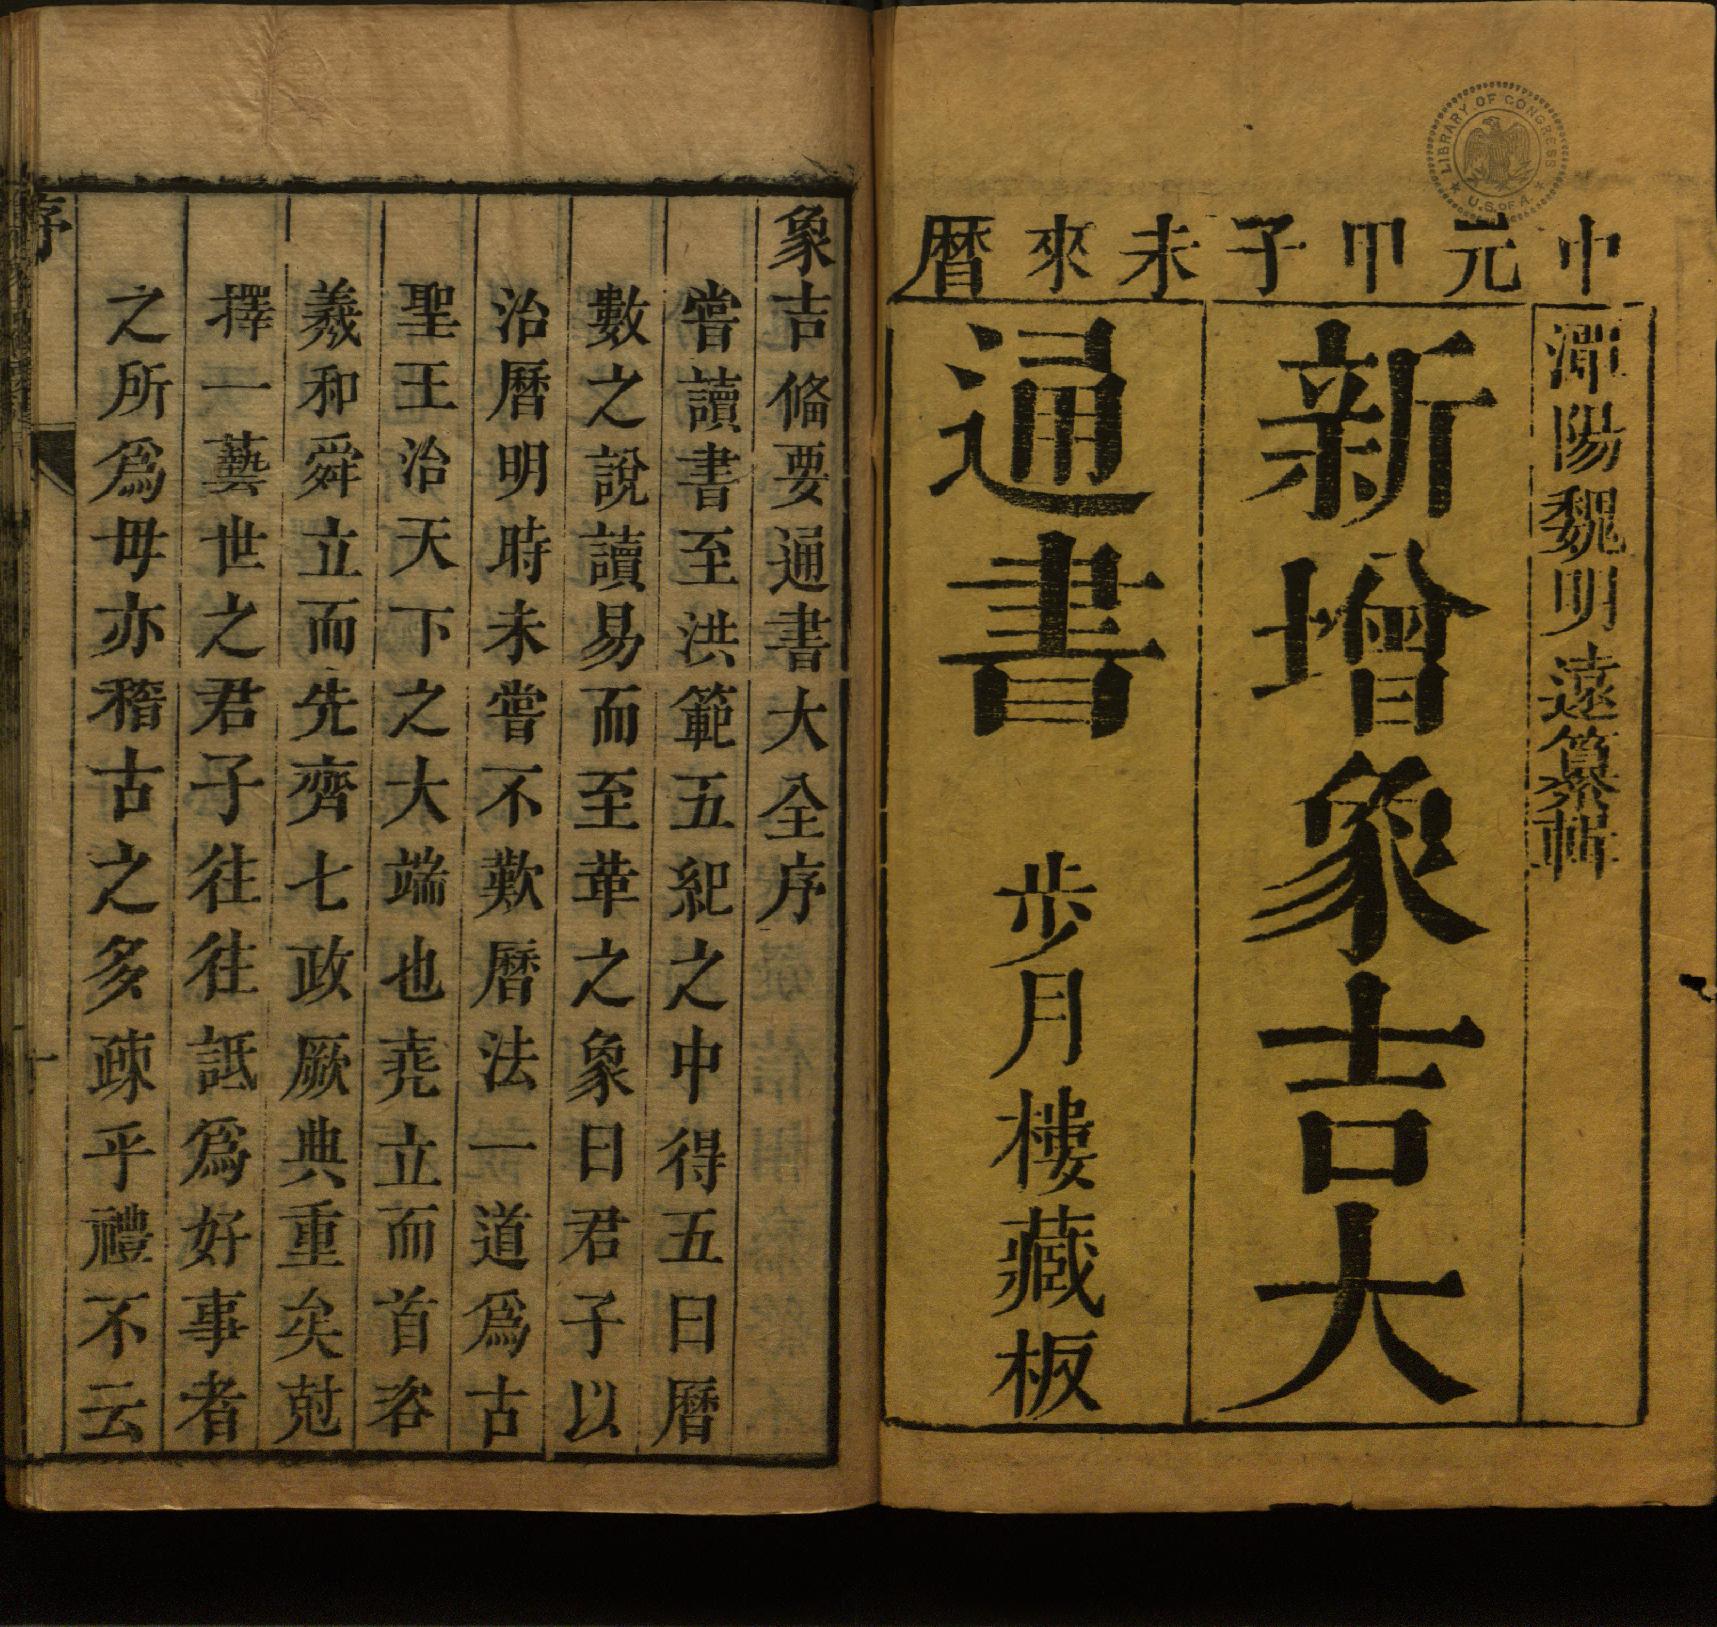 LIBRARY OF CONGRESS
U.S. OF A.
中元甲子未來曆
潭陽魏明遠纂輯
新增象吉大
通書
步月樓藏板
象吉備要通書大全序
嘗讀書至洪範五紀之中得五曰曆
數之說讀易而至革之象曰君子以
治曆明時未嘗不歎曆法一道爲古
聖王治天下之大端也堯立而首咨
羲和舜立而先齊七政厥典重矣尅
擇一藝世之君子往往詆爲好事者
之所爲毋亦稽古之多疎乎禮不云
序
一